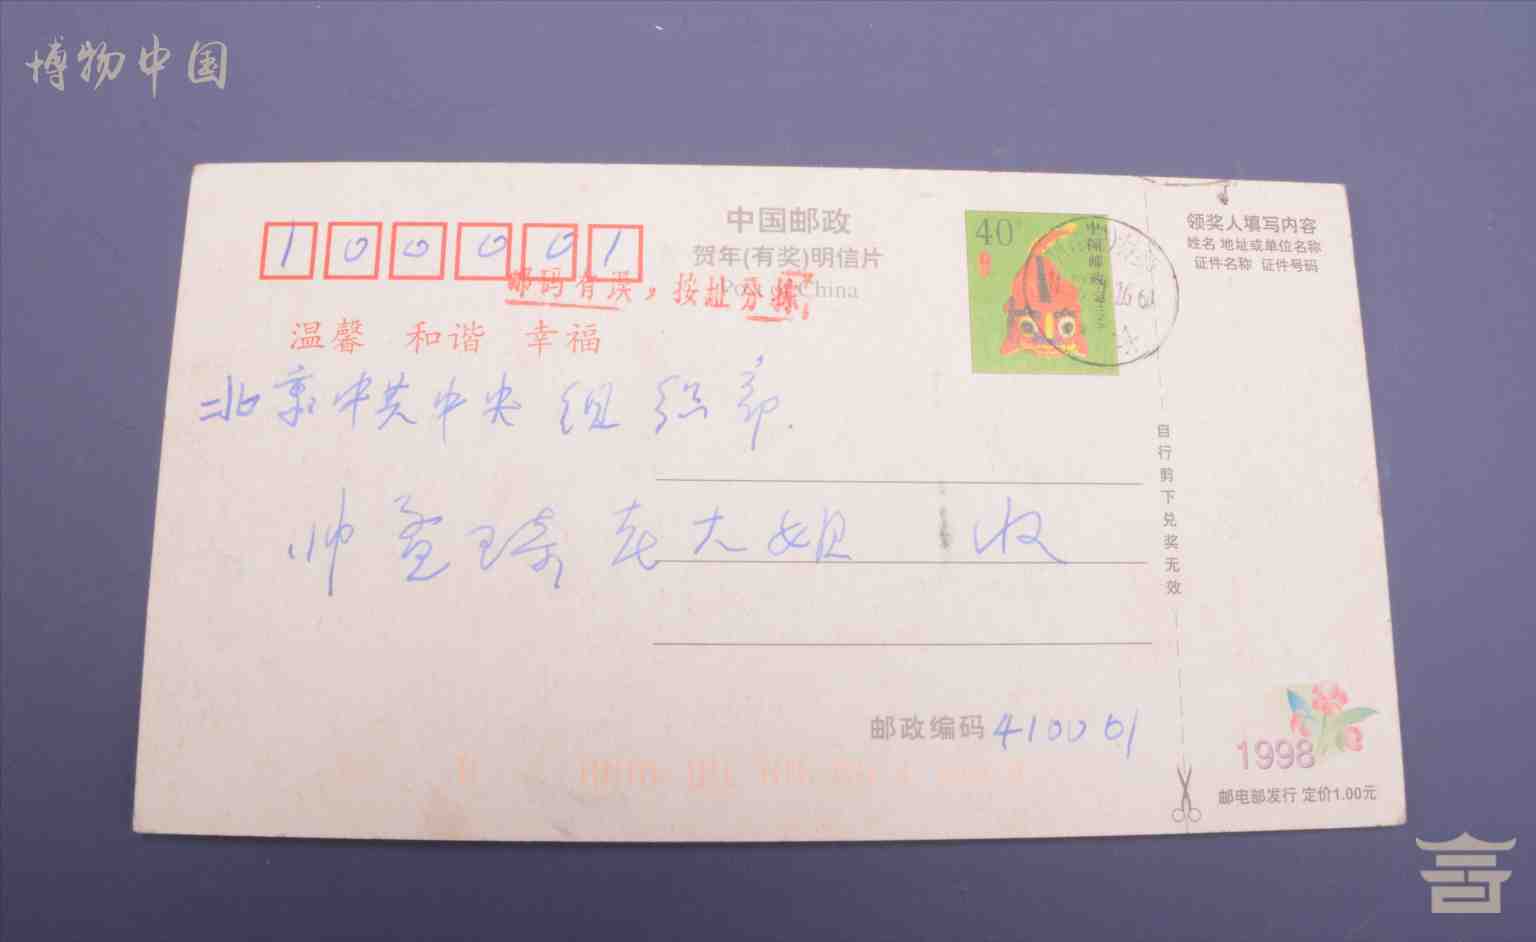 博物中国
100001
中国邮政
贺年(有奖)明信片
Post of China
邮码有误，按址分拣
温馨 和谐 幸福
北京中共中央组织部.
帅孟琦老大姐 收
邮政编码 410001
40
中国邮政
领奖人填写内容
姓名 地址或单位名称
证件名称 证件号码
自行剪下兑奖无效
1998
邮电部发行 定价1.00元